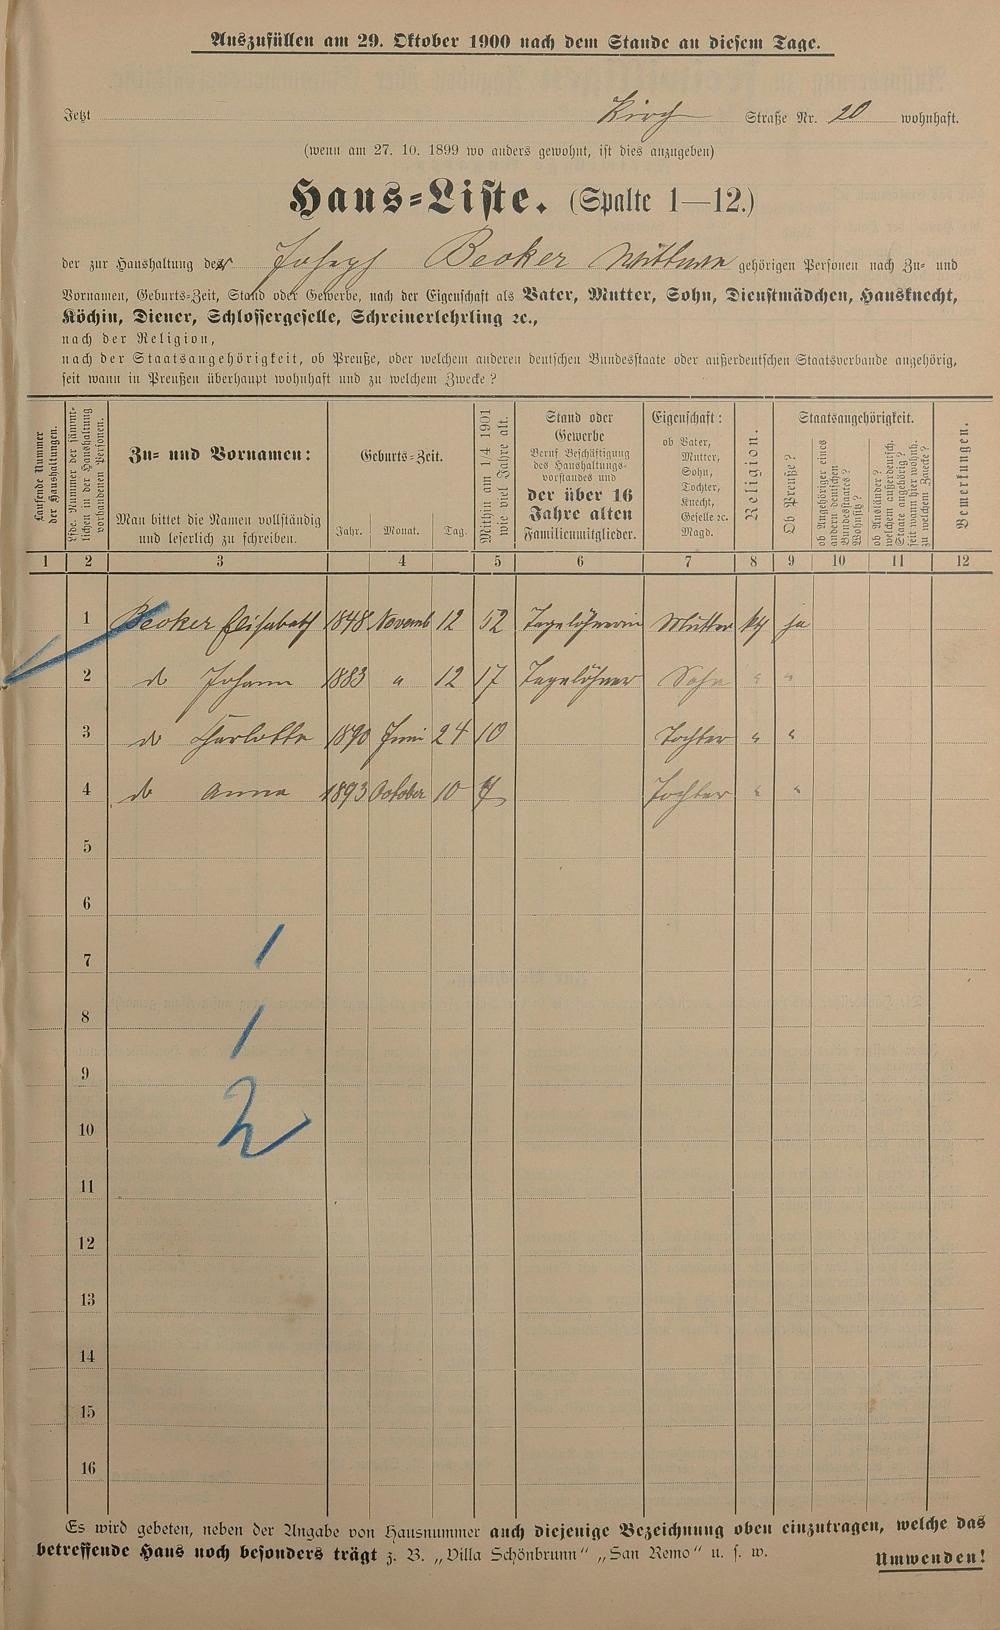 Auszufüllen am 29. Oktober 1900 nach dem Stande an diesem Tage.
Jetzt Kirch Straße Nr. 20 wohnhaft.
(wenn am 27. 10. 1899 wo anders gewohnt, ist dies anzugeben)
Haus-Liste. (Spalte 1—12.)
der zur Haushaltung der Joseph Becker Wittwe gehörigen Personen nach Zu- und
Vornamen, Geburts-Zeit, Stand oder Gewerbe, nach der Eigenschaft als Vater, Mutter, Sohn, Dienstmädchen, Hausknecht,
Köchin, Diener, Schlossergeselle, Schreinerlehrling ꝛc.,
nach der Religion,
nach der Staatsangehörigkeit, ob Preuße, oder welchem anderen deutschen Bundesstaate oder außerdeutschen Staatsverbande angehörig,
seit wann in Preußen überhaupt wohnhaft und zu welchem Zwecke?
Laufende Nummer der Haushaltungen.
Lfde. Nummer der sämmtlichen in der Haushaltung vorhandenen Personen.
Zu- und Vornamen:
Man bittet die Namen vollständig
und leserlich zu schreiben.
Geburts-Zeit.
Jahr. Monat. Tag.
Mithin am 1/4 1901
wie viel Jahre alt.
Stand oder
Gewerbe
Beruf Beschäftigung
des Haushaltungs-
vorstandes und
der über 16
Jahre alten
Familienmitglieder.
Eigenschaft:
ob Vater,
Mutter,
Sohn,
Tochter,
Knecht,
Geselle ꝛc.
Magd.
Religion.
Staatsangehörigkeit.
Ob Preuße?
ob Angehöriger eines
andern deutschen
Bundesstaates?
Wohnsitz?
ob Ausländer?
welchem außerdeutsch.
Staate angehörig?
seit wann hier wohnh.
zu welchem Zwecke?
Bemerkungen.
1 2 3 4 5 6 7 8 9 10 11 12
1 Becker Elisabeth 1848 Novemb 12 52 Tagelöhnerin Mutter kth ja
2 do Johann 1883 " 12 17 Tagelöhner Sohn " "
3 do Charlotte 1890 Juni 24 10 Tochter " "
4 do Anna 1893 October 10 7 Tochter " "
5
6
7 1
8 1
9
10 2
11
12
13
14
15
16
Es wird gebeten, neben der Angabe von Hausnummer auch diejenige Bezeichnung oben einzutragen, welche das
betreffende Haus noch besonders trägt z. B. „Villa Schönbrunn" „San Remo" u. s. w.
Umwenden!